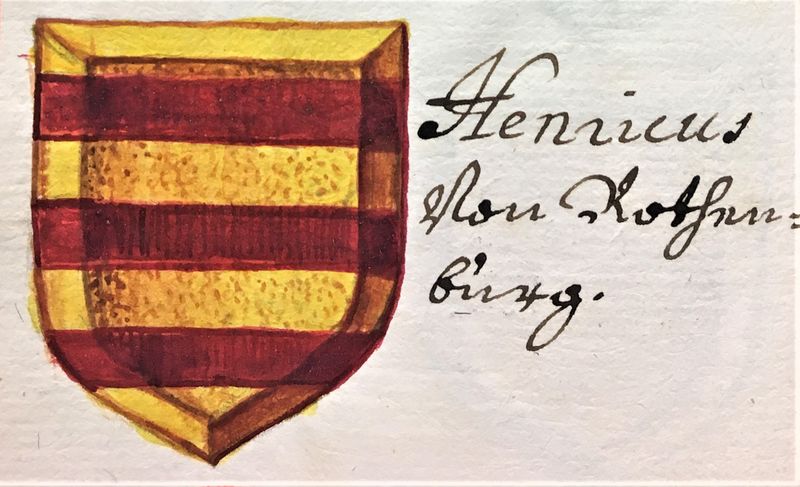 Henricus
Von Rothen-
burg.